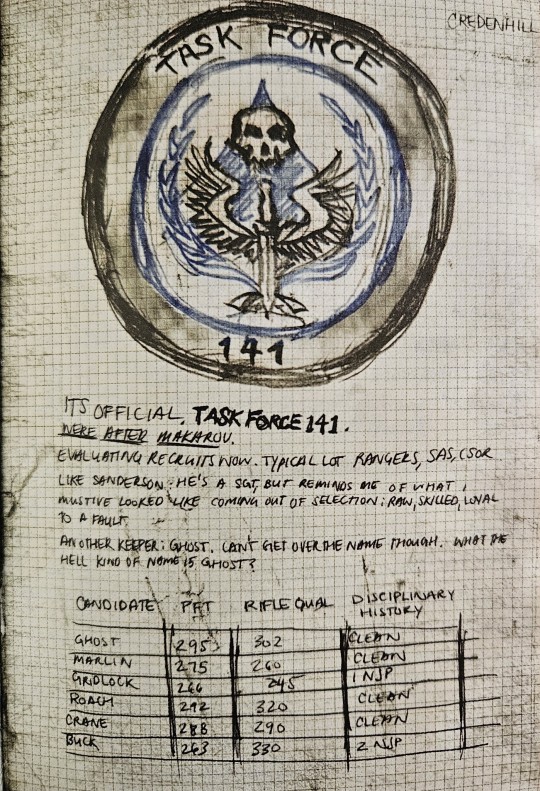 CREDENHILL
TASK FORCE
141
ITS OFFICIAL. TASK FORCE 141.
WERE AFTER MAKAROV.
EVALUATING RECRUITS NOW. TYPICAL LOT RANGERS, SAS, CSOR
LIKE SANDERSON; HE'S A SGT, BUT REMINDS ME OF WHAT I
MUSTIVE LOOKED LIKE COMING OUT OF SELECTION; RAW, SKILLED, LOYAL
TO A FAULT.
ANOTHER KEEPER: GHOST. CANT GET OVER THE NAME THOUGH. WHAT THE
HELL KIND OF NAME IS GHOST?
CANDIDATE PFT RIFLE QUAL DISCIPLINARY
HISTORY
GHOST 295 302 CLEAN
MARLIN 275 260 CLEAN
GRIDLOCK 266 245 1 NJP
ROACH 292 320 CLEAN
CRANE 288 290 CLEAN
BUCK 263 330 2 NJP